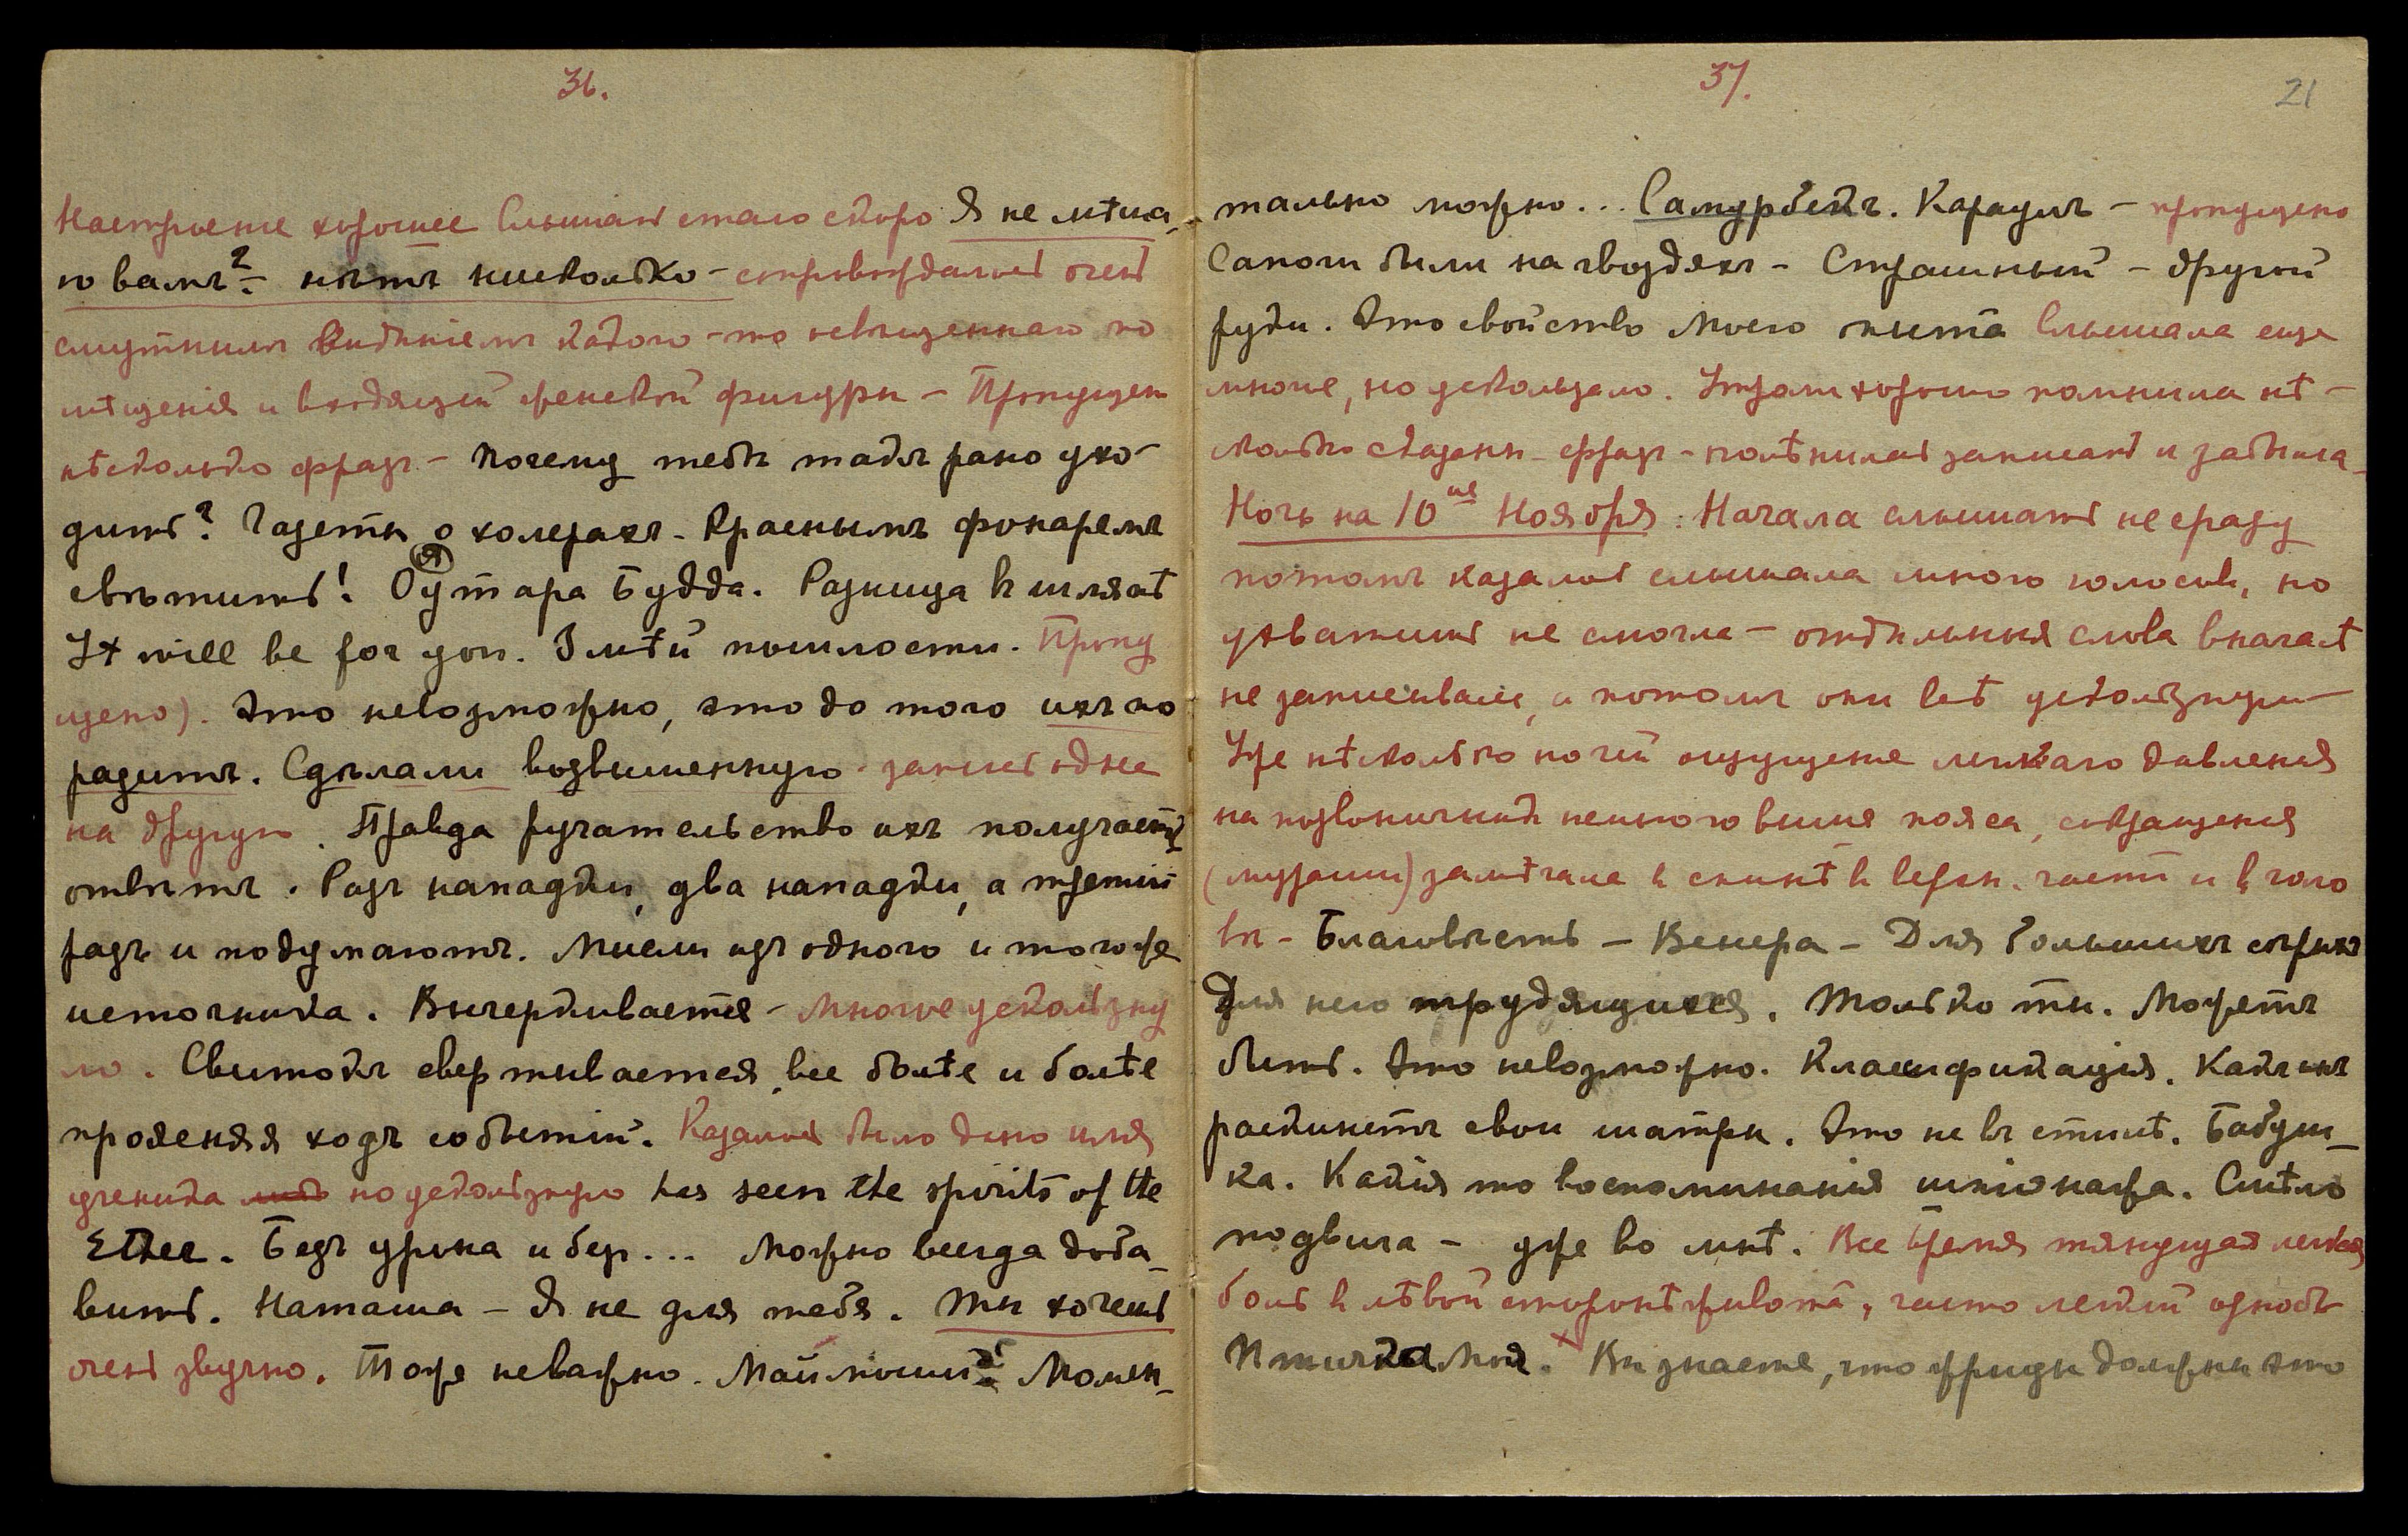 36.
Настроенiе хорошее Слышать стало скоро Я не мѣша-
ю вамъ? – нѣтъ нисколько – сопровождалось очень
смутнымъ видѣнiемъ какого-то невѣщеннаго по
мѣщенiя и входящей женской фигуры – Пропущен
нѣсколько фразъ – Почему тебѣ такъ рано ухо-
дить? Газеты о холерахъ – Краснымъ фонаремъ
свѣтить! Оутара Будда. (я) Разница въ шляпѣ
It will be for you. Змѣй пошлости. Пропу
щено). Это невозможно, это до того ихъ по
разитъ. Сдѣлали возвышенную – запись одна
на другую. Правда ручательство ихъ получаетъ
отвѣтъ. Разъ нападки, два нападки, а третiй
разъ и подумаютъ. Мысли изъ одного и того же
источника. Вычеркивается – Многое ускользну
ло. Свитокъ свертывается, все болѣе и болѣе
проясняя ходъ событiй. Казалось было дано имя
ученика но ускользнуло has seen the spirits of the
Ether. Безъ урона и без... Можно всегда доба-
вить. Наташа – Я не для тебя. Ты хочешь
очень звучно. Тоже неважно. Молен-
37.
21
тально можно... Самурбекъ. – пропущено
Сапоги были на гвоздяхъ – Страшный – другой
руки. Это свойство моего щита Слышала еще
многое, но ускользало. Утромъ хорошо помнила нѣ-
сколько фразъ – полѣнилась записать и забыла –
Ночь на 10ое Ноября: Начала слышать не сразу
потомъ казалось слышала много голосовъ, но
ухватить не смогла – отдѣльныя слова вначалѣ
не записывала, а потомъ они всѣ ускользнули –
Уже нѣсколько ночей ощущенiе легкаго давленiя
на позвоночникъ немного выше пояса, сокращенiя
(мурашки) замѣчала въ спинѣ въ верхн. части и въ голо
вѣ – Благовѣсть – Венера – Для большихъ
Для него трудящихся. Только ты. Можетъ
быть. Это невозможно. Классификацiя. Какъ онъ
раскинетъ свои шатры. Это не въ стилѣ. Бабуш-
ка. Какiя то воспоминанiя шпiонажа. Смѣло
подвига – уже во мнѣ. Все время тянущая легкая
боль въ лѣвой сторонѣ живота, часто легкiй ознобъ
Птичка моя. Вы знаете, что жрицы должны это